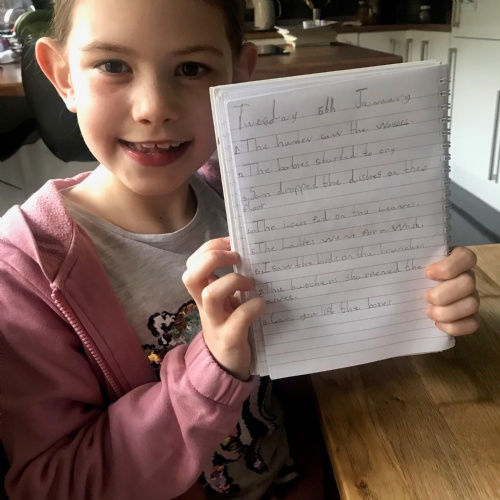 Tuesday 5th January
1. The hunter saw the wolves.
2. The babies started to cry
3. Sam dropped the dishes on the
floor.
The fed on the leaves.
The ladies went for a walk.
6. I saw the birds on the branches
The butchers sharpened the
8. Can you lift the boxes